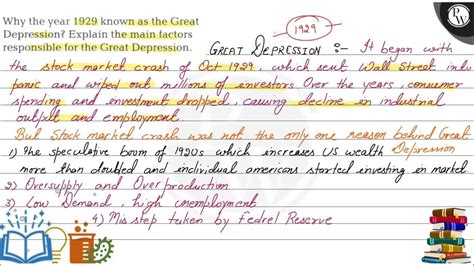 Why the year 1929 known as the Great
Depression? Explain the main factors
responsible for the Great Depression.
1929
PW
GREAT DEPRESSION :- It began with
the stock market crash of Oct 1929, which sent Wall Street into
panic and wiped out millions of envestors. Over the years, consumer
spending and investment dropped, causing decline in industrial
output and employment.
But Stock market crash was not the only one reason behind Great
Depression
1) The speculative boom of 1920s which increases US wealth
more than doubled and individual americans started investing in market.
2) Oversupply and Over production
3) Low Demand, high unemployment
4) Mis step taken by Fedrel Reserve